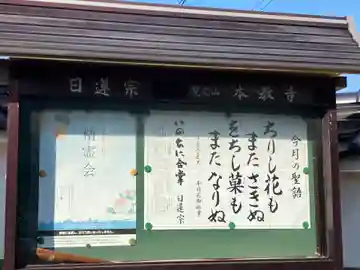 日蓮宗
本教寺
今月の聖語
ちりし花も
またさきぬ
をちし菓も
またなりぬ
いのちに合掌 日蓮宗
霊会